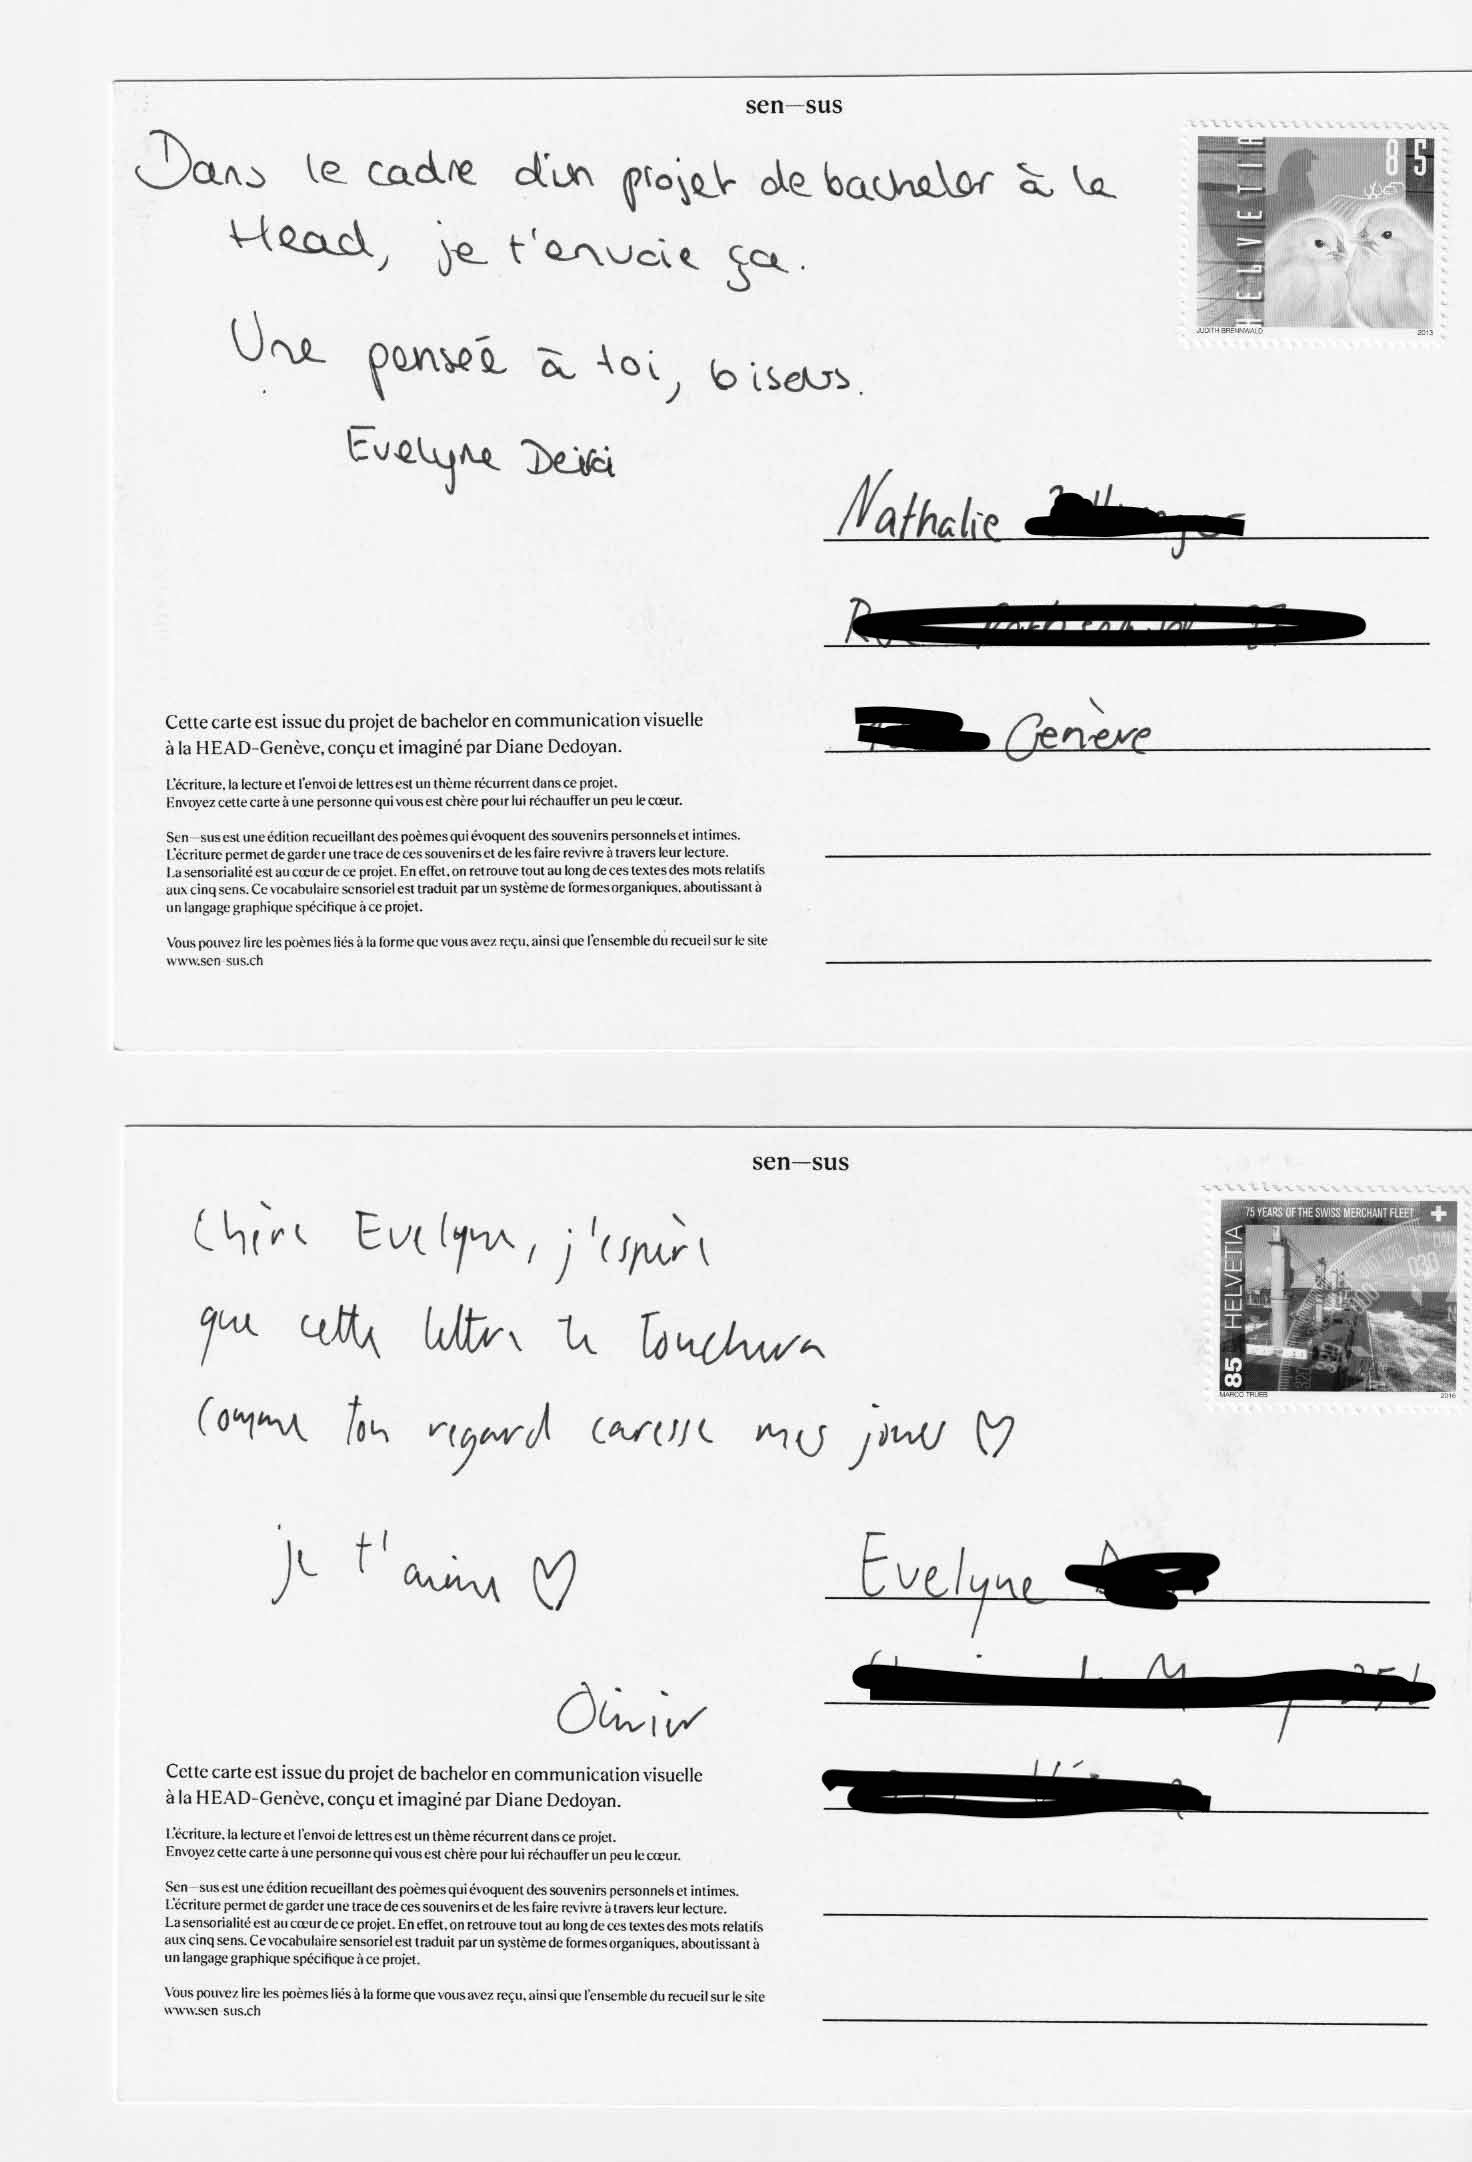 sen—sus
Dans le cadre d'un projet de bachelor à la
Head, je t'envoie ça.
Une pensée à toi, bisous.
Evelyne
HELVETIA
85
JUDITH BRENNWALD
2013
Nathalie
Genève
Cette carte est issue du projet de bachelor en communication visuelle
à la HEAD–Genève, conçu et imaginé par Diane Dedoyan.
L'écriture, la lecture et l'envoi de lettres est un thème récurrent dans ce projet.
Envoyez cette carte à une personne qui vous est chère pour lui réchauffer un peu le cœur.
Sen—sus est une édition recueillant des poèmes qui évoquent des souvenirs personnels et intimes.
L'écriture permet de garder une trace de ces souvenirs et de les faire revivre à travers leur lecture.
La sensorialité est au cœur de ce projet. En effet, on retrouve tout au long de ces textes des mots relatifs
aux cinq sens. Ce vocabulaire sensoriel est traduit par un système de formes organiques, aboutissant à
un langage graphique spécifique à ce projet.
Vous pouvez lire les poèmes liés à la forme que vous avez reçu, ainsi que l'ensemble du recueil sur le site
www.sen-sus.ch
sen—sus
Chère Evelyne, j'espère
que cette lettre te touchera
comme ton regard caresse mes joues ♡
je t'aime ♡
Olivier
75 YEARS OF THE SWISS MERCHANT FLEET
HELVETIA
85
MARCO TRUEB
2016
Evelyne
Cette carte est issue du projet de bachelor en communication visuelle
à la HEAD–Genève, conçu et imaginé par Diane Dedoyan.
L'écriture, la lecture et l'envoi de lettres est un thème récurrent dans ce projet.
Envoyez cette carte à une personne qui vous est chère pour lui réchauffer un peu le cœur.
Sen—sus est une édition recueillant des poèmes qui évoquent des souvenirs personnels et intimes.
L'écriture permet de garder une trace de ces souvenirs et de les faire revivre à travers leur lecture.
La sensorialité est au cœur de ce projet. En effet, on retrouve tout au long de ces textes des mots relatifs
aux cinq sens. Ce vocabulaire sensoriel est traduit par un système de formes organiques, aboutissant à
un langage graphique spécifique à ce projet.
Vous pouvez lire les poèmes liés à la forme que vous avez reçu, ainsi que l'ensemble du recueil sur le site
www.sen-sus.ch